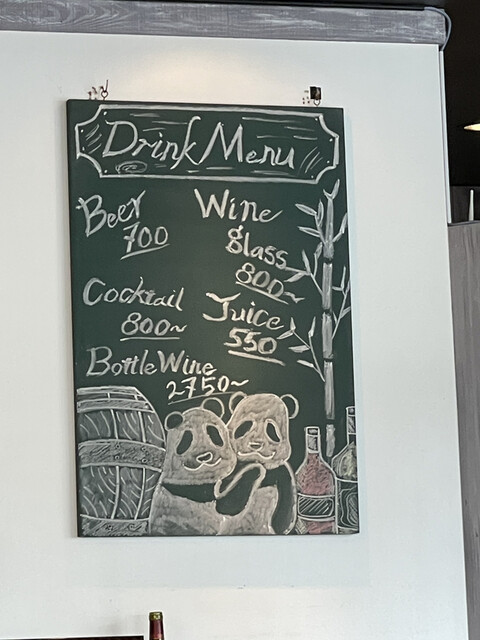 Drink Menu
Beer
700
Wine
glass
800~
Cocktail
800~
Juice
550
Bottle Wine
2750~